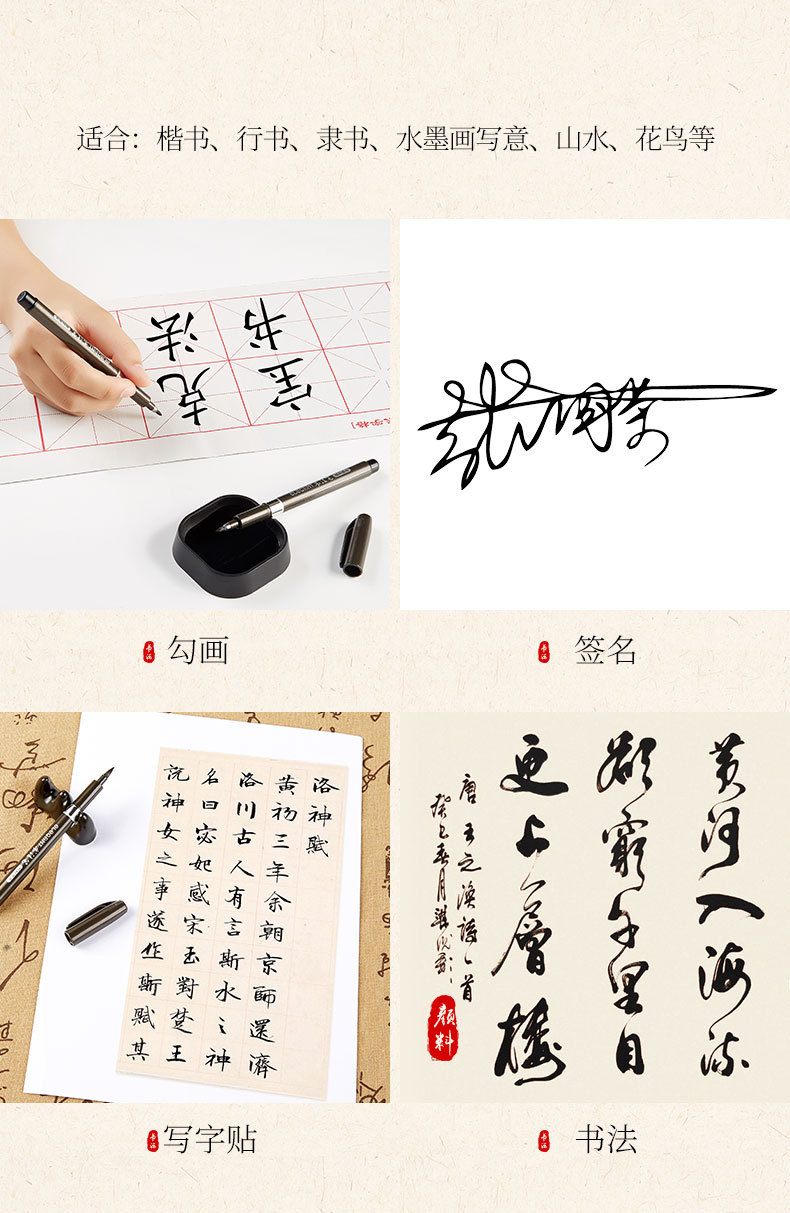 适合：楷书、行书、隶书、水墨画写意、山水、花鸟等
宝克
书法
勾画
签名
洛神賦
黄初三年余朝京師還濟
洛川古人有言斯水之神
名曰宓妃感宋玉對楚王
説神女之事遂作斯賦其
黄河入海流
欲窮千里目
更上一層樓
唐王之渙詩一首
癸巳春月
顏料
书法
写字贴
书法